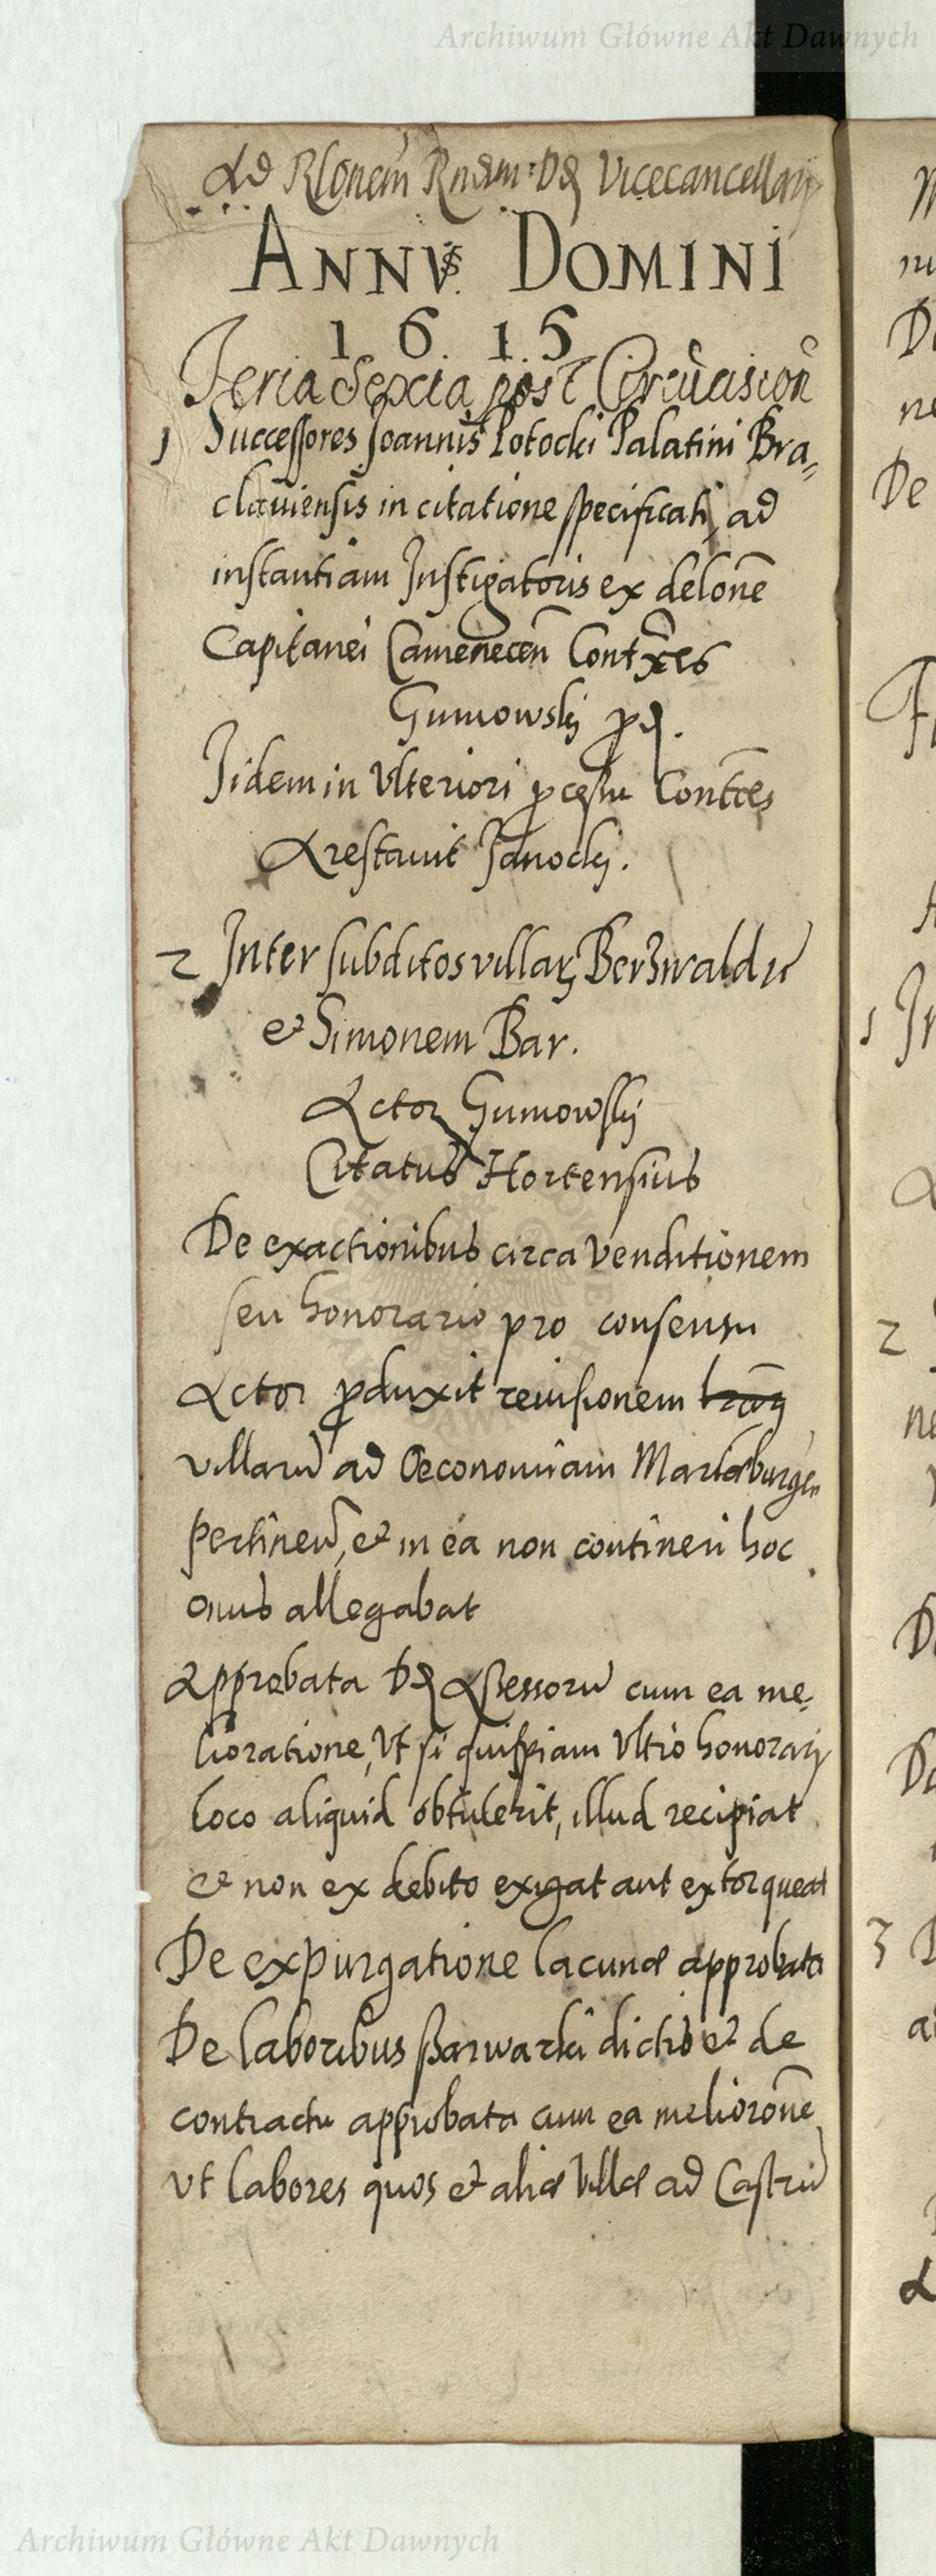 Archiwum Główne Akt Dawnych
Ad Rlonem Rndm: D Vicecancellarij
ANNVS DOMINI
1 6. 1. 5
Feria Sexta post Circūcision
1 Successores Joannis Potocki Palatini Bra=
claviensis in citatione specificati, ad
instantiam Instigatoris ex delone
Capitanei Camenecen Contces
Gumowskj pd.
Jidem in Vlteriori pcessu Contces
Arestavit Janockj.
2 Inter subditos villar Berzwaldu
et Simonem Bar.
Actor Gumowskj
Citatus Hortensius
De exactionibus circa Venditionem
seu honorario pro consensu
Actor pduxit revisionem
villarū ad Oeconomiam Marieburgen
pertineñ, et in ea non contineri hoc
onus allegabat
Approbata D Assessorū cum ea me=
lioratione, Vt si quispiam Vltro honorarij
loco aliquid obtulerit, illud recipiat
et non ex debito exigat aut extorqueat
De expurgatione lacunæ approbata
De laboribus szarwarki dictis et de
contractu approbata cum ea meliorone
Vt labores quos et aliæ Villæ ad Castrū
Archiwum Główne Akt Dawnych